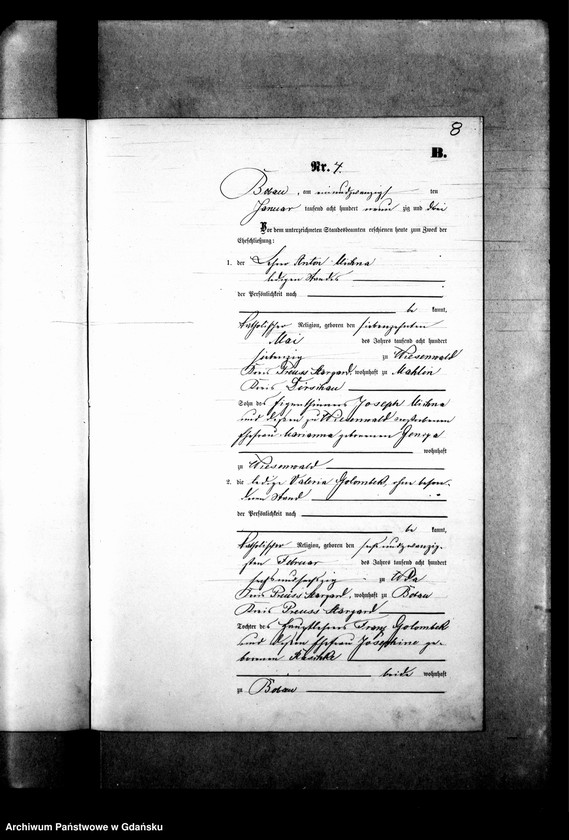 8
B.
Nr. 4.
Bobau, am einundzwanzigsten
Januar tausend acht hundert neunzig und drei
Vor dem unterzeichneten Standesbeamten erschienen heute zum Zweck der
Eheschließung:
1. der Lehrer Anton Michna
ledigen Standes
der Persönlichkeit nach
be kannt,
katholischer Religion, geboren den siebenzehnten
Mai des Jahres tausend acht hundert
siebenzig zu Wiesenwald
Kreis Preuss. Stargard, wohnhaft zu Mahlin
Kreis Dirschau
Sohn des Eigenthümers Joseph Michna
und dessen zu Wiesenwald verstorbenen
Ehefrau Marianna geborenen
wohnhaft
zu Wiesenwald
2. die ledige Valeria Golombek, ohne beson-
deren Stand
der Persönlichkeit nach
be kannt,
katholischer Religion, geboren den sechsundzwanzig-
sten Februar des Jahres tausend acht hundert
sechsundsechzig zu Wda
Kreis Preuss. Stargard, wohnhaft zu Bobau
Kreis Preuss. Stargard
Tochter des Hauptlehrers Franz Golombek
und dessen Ehefrau Josephine ge-
borenen
beide wohnhaft
zu Bobau
Archiwum Państwowe w Gdańsku